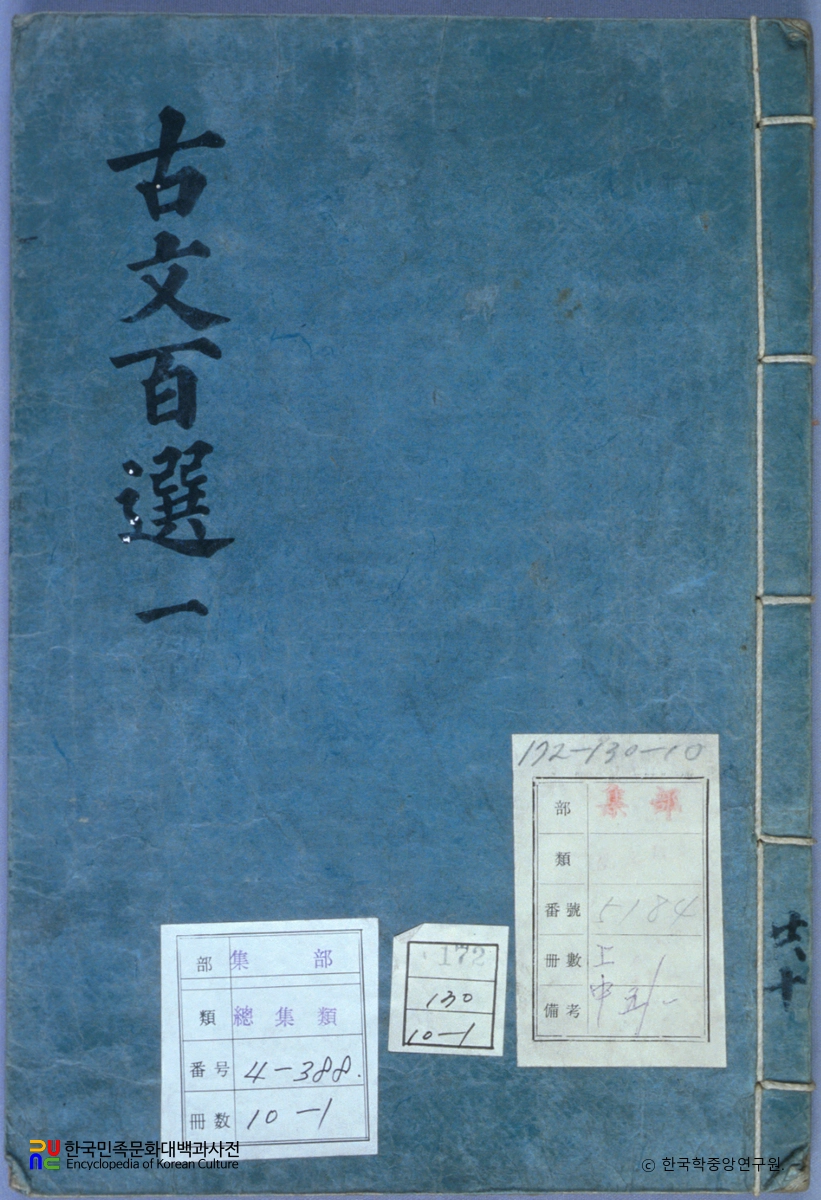 古文百選 一
172-130-10
部 集部
類
番號 5184
冊數
備考
172
130
10-1
部 集部
類 總集類
番号 4-388.
冊数 10-1
한국민족문화대백과사전
Encyclopedia of Korean Culture
© 한국학중앙연구원